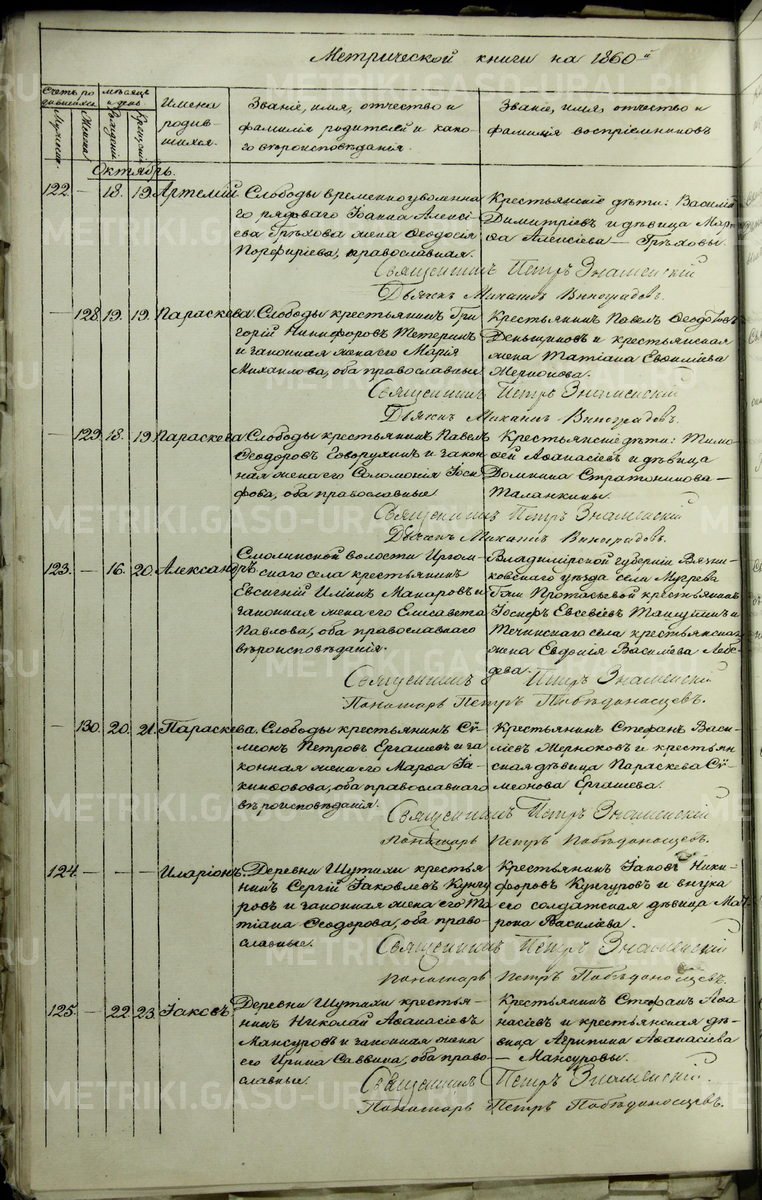 Метрической книги на 1860й
Счетъ родившихся. Мужеска. Женска.
Мѣсяцъ и день Рожденія Крещенія
Имена родившихся.
Званіе, имя, отчество и фамилія родителей и какого вѣроисповѣданія.
Званіе, имя, отчество и фамилія воспріемниковъ
Октябрь.
122. — 18. 19. Артемій
Слободы временно уволенна
го рядоваго Іоанна Алексі
ева Грѣхова жена Ѳеодосія
Порфиріева, православная.
Крестьянскіе дѣти: Василій
Димитріевъ и дѣвица Мар
ѳа Алексіева — Грѣховы.
Священникъ Петръ Знаменскій
Дьячекъ Михаилъ Виноградовъ.
— 128. 19. 19. Параскева.
Слободы крестьянинъ Гри
горій Никифоровъ Тетеринъ
и законная жена его Марія
Михаилова, оба православные
Крестьянинъ Павелъ Ѳеодоровъ
Деньщиковъ и крестьянская
жена Татіана
Священникъ Петръ Знаменскій
Дьячекъ Михаилъ Виноградовъ.
— 129. 18. 19. Параскева
Слободы крестьянинъ Павелъ
Ѳеодоровъ Говорухинъ и закон
ная жена его Соломонія Іоси
фова, оба православные
Крестьянскіе дѣти: Тимо
ѳей Аѳанасіевъ и дѣвица
Домника Стратоникова —
Таланкины.
Священникъ Петръ Знаменскій
Дьячекъ Михаилъ Виноградовъ.
123. — 16. 20. Александръ
Смолинской волости
скаго села крестьянинъ
Евсигній Илiинъ Макаровъ и
законная жена его Елисавета
Павлова, оба православнаго
вѣроисповѣданія.
Владимірской губерніи Вязни
ковскаго уѣзда села Мугрева
крестьянинъ
Іосифъ Евсевіевъ и
Течинскаго села крестьянская
жена Евдокія Василіева Лебе
дева.
Священникъ Петръ Знаменскій
Пономарь Петръ Побѣдоносцевъ.
— 130. 20. 21. Параскева.
Слободы крестьянинъ Сѵ
меонъ Петровъ Ергашевъ и за
конная жена его Марѳа Іа
кинѳовова, оба православнаго
вѣроисповѣданія.
Крестьянинъ Стефанъ Васи
ліевъ Черноковъ и крестьян
ская дѣвица Параскева Сѵ
меонова Ергашева.
Священникъ Петръ Знаменскій
Пономарь Петръ Побѣдоносцевъ.
124. — — — Иларіонъ.
Деревни Шутихи крестья
нинъ Сергій Іаковлевъ Кунгу
ровъ и законная жена его Та
тіана Ѳеодорова, оба право-
славные.
Крестьянинъ Іаковъ Ники-
форовъ Кунгуровъ и внука
его солдатская дѣвица Мат
рона Василіева.
Священникъ Петръ Знаменскій
Пономарь Петръ Побѣдоносцевъ.
125. — 22. 23. Іаковъ.
Деревни Шутихи крестья-
нинъ Николай Аѳанасіевъ
Мансуровъ и законная жена
его Ирина Саввина, оба право-
славные.
Крестьянинъ Стефанъ Аѳа
насіевъ и крестьянская дѣ-
вица Агрипина Аѳанасіева
— Мансуровы.
Священникъ Петръ Знаменскій.
Пономарь Петръ Побѣдоносцевъ.
METRIKI.GASO-URAL.RU